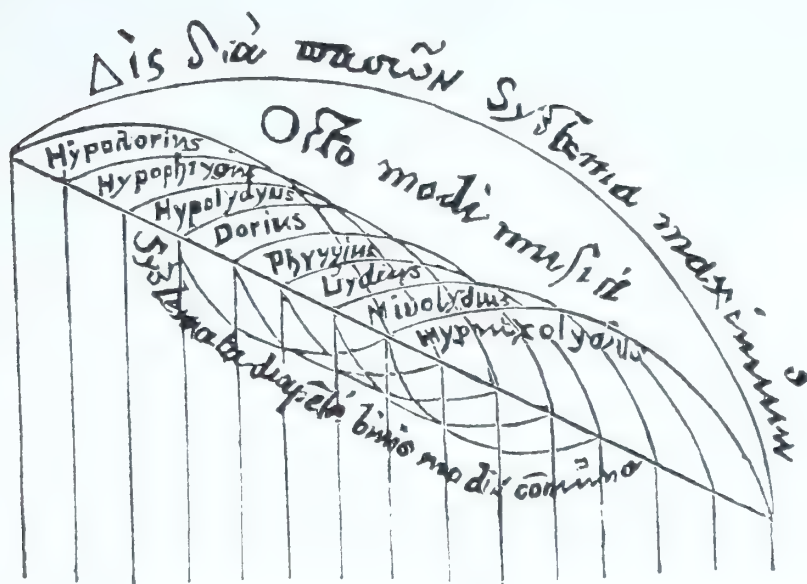 Δὶς διὰ πασῶν Systema maximum
Octo modi musici
Hypodorius
Hypophrygius
Hypolydius
Dorius
Phrygius
Lydius
Mixolydius
Hypermixolydius
Systemata diapẽtẽ binis modis comũnia